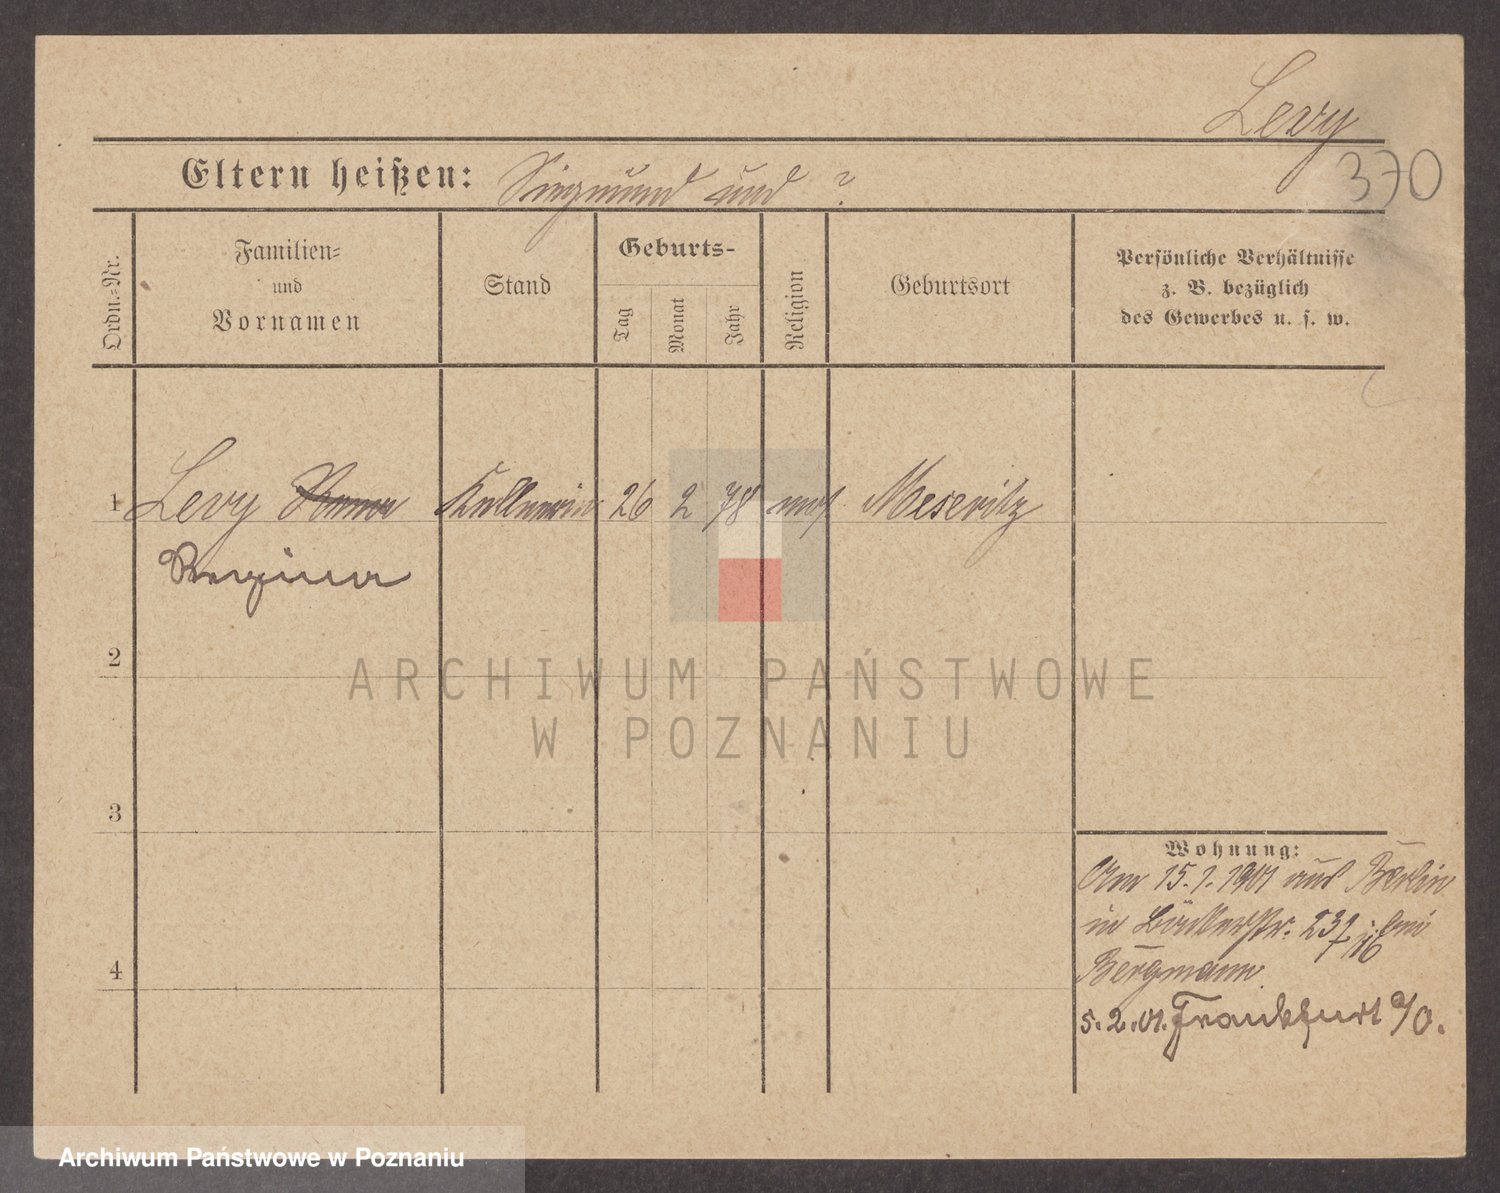 Levy
370
Eltern heißen: Siegmund und ?
Ordn.=Nr.
Familien=
und
Vornamen
Stand
Geburts-
Tag
Monat
Jahr
Religion
Geburtsort
Persönliche Verhältnisse
z. B. bezüglich
des Gewerbes u. s. w.
1 Levy Kellnerin 26 2 78 mos Meseritz
Regina
2
3
4
ARCHIWUM PAŃSTWOWE
W POZNANIU
Wohnung:
Am 15.1.1901 aus Berlin
in bei
Bergmann
5.2.01. Frankfurt a/O.
Archiwum Państwowe w Poznaniu